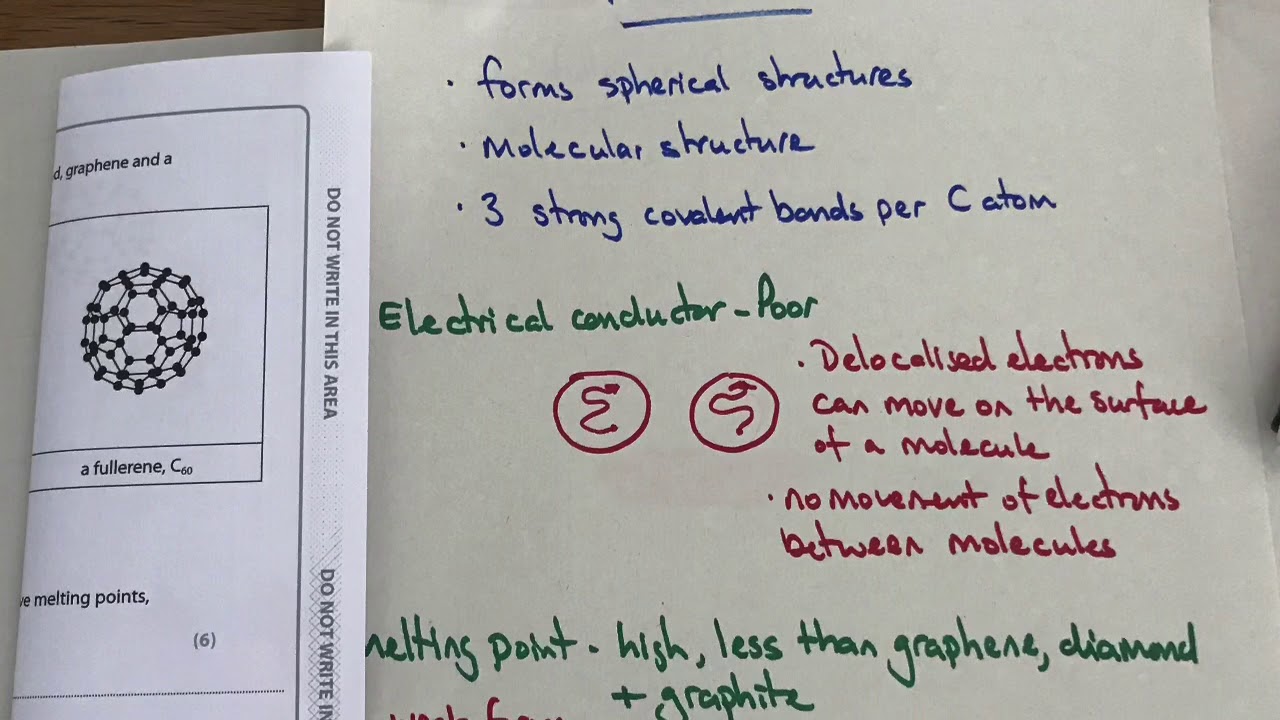 d, graphene and a
a fullerene, C₆₀
e melting points,
(6)
DO NOT WRITE IN THIS AREA
DO NOT WRITE IN
· forms spherical structures
· Molecular structure
· 3 strong covalent bonds per C atom
Electrical conductor - Poor
· Delocalised electrons
can move on the surface
of a molecule
· no movement of electrons
between molecules
melting point - high, less than graphene, diamond
+ graphite